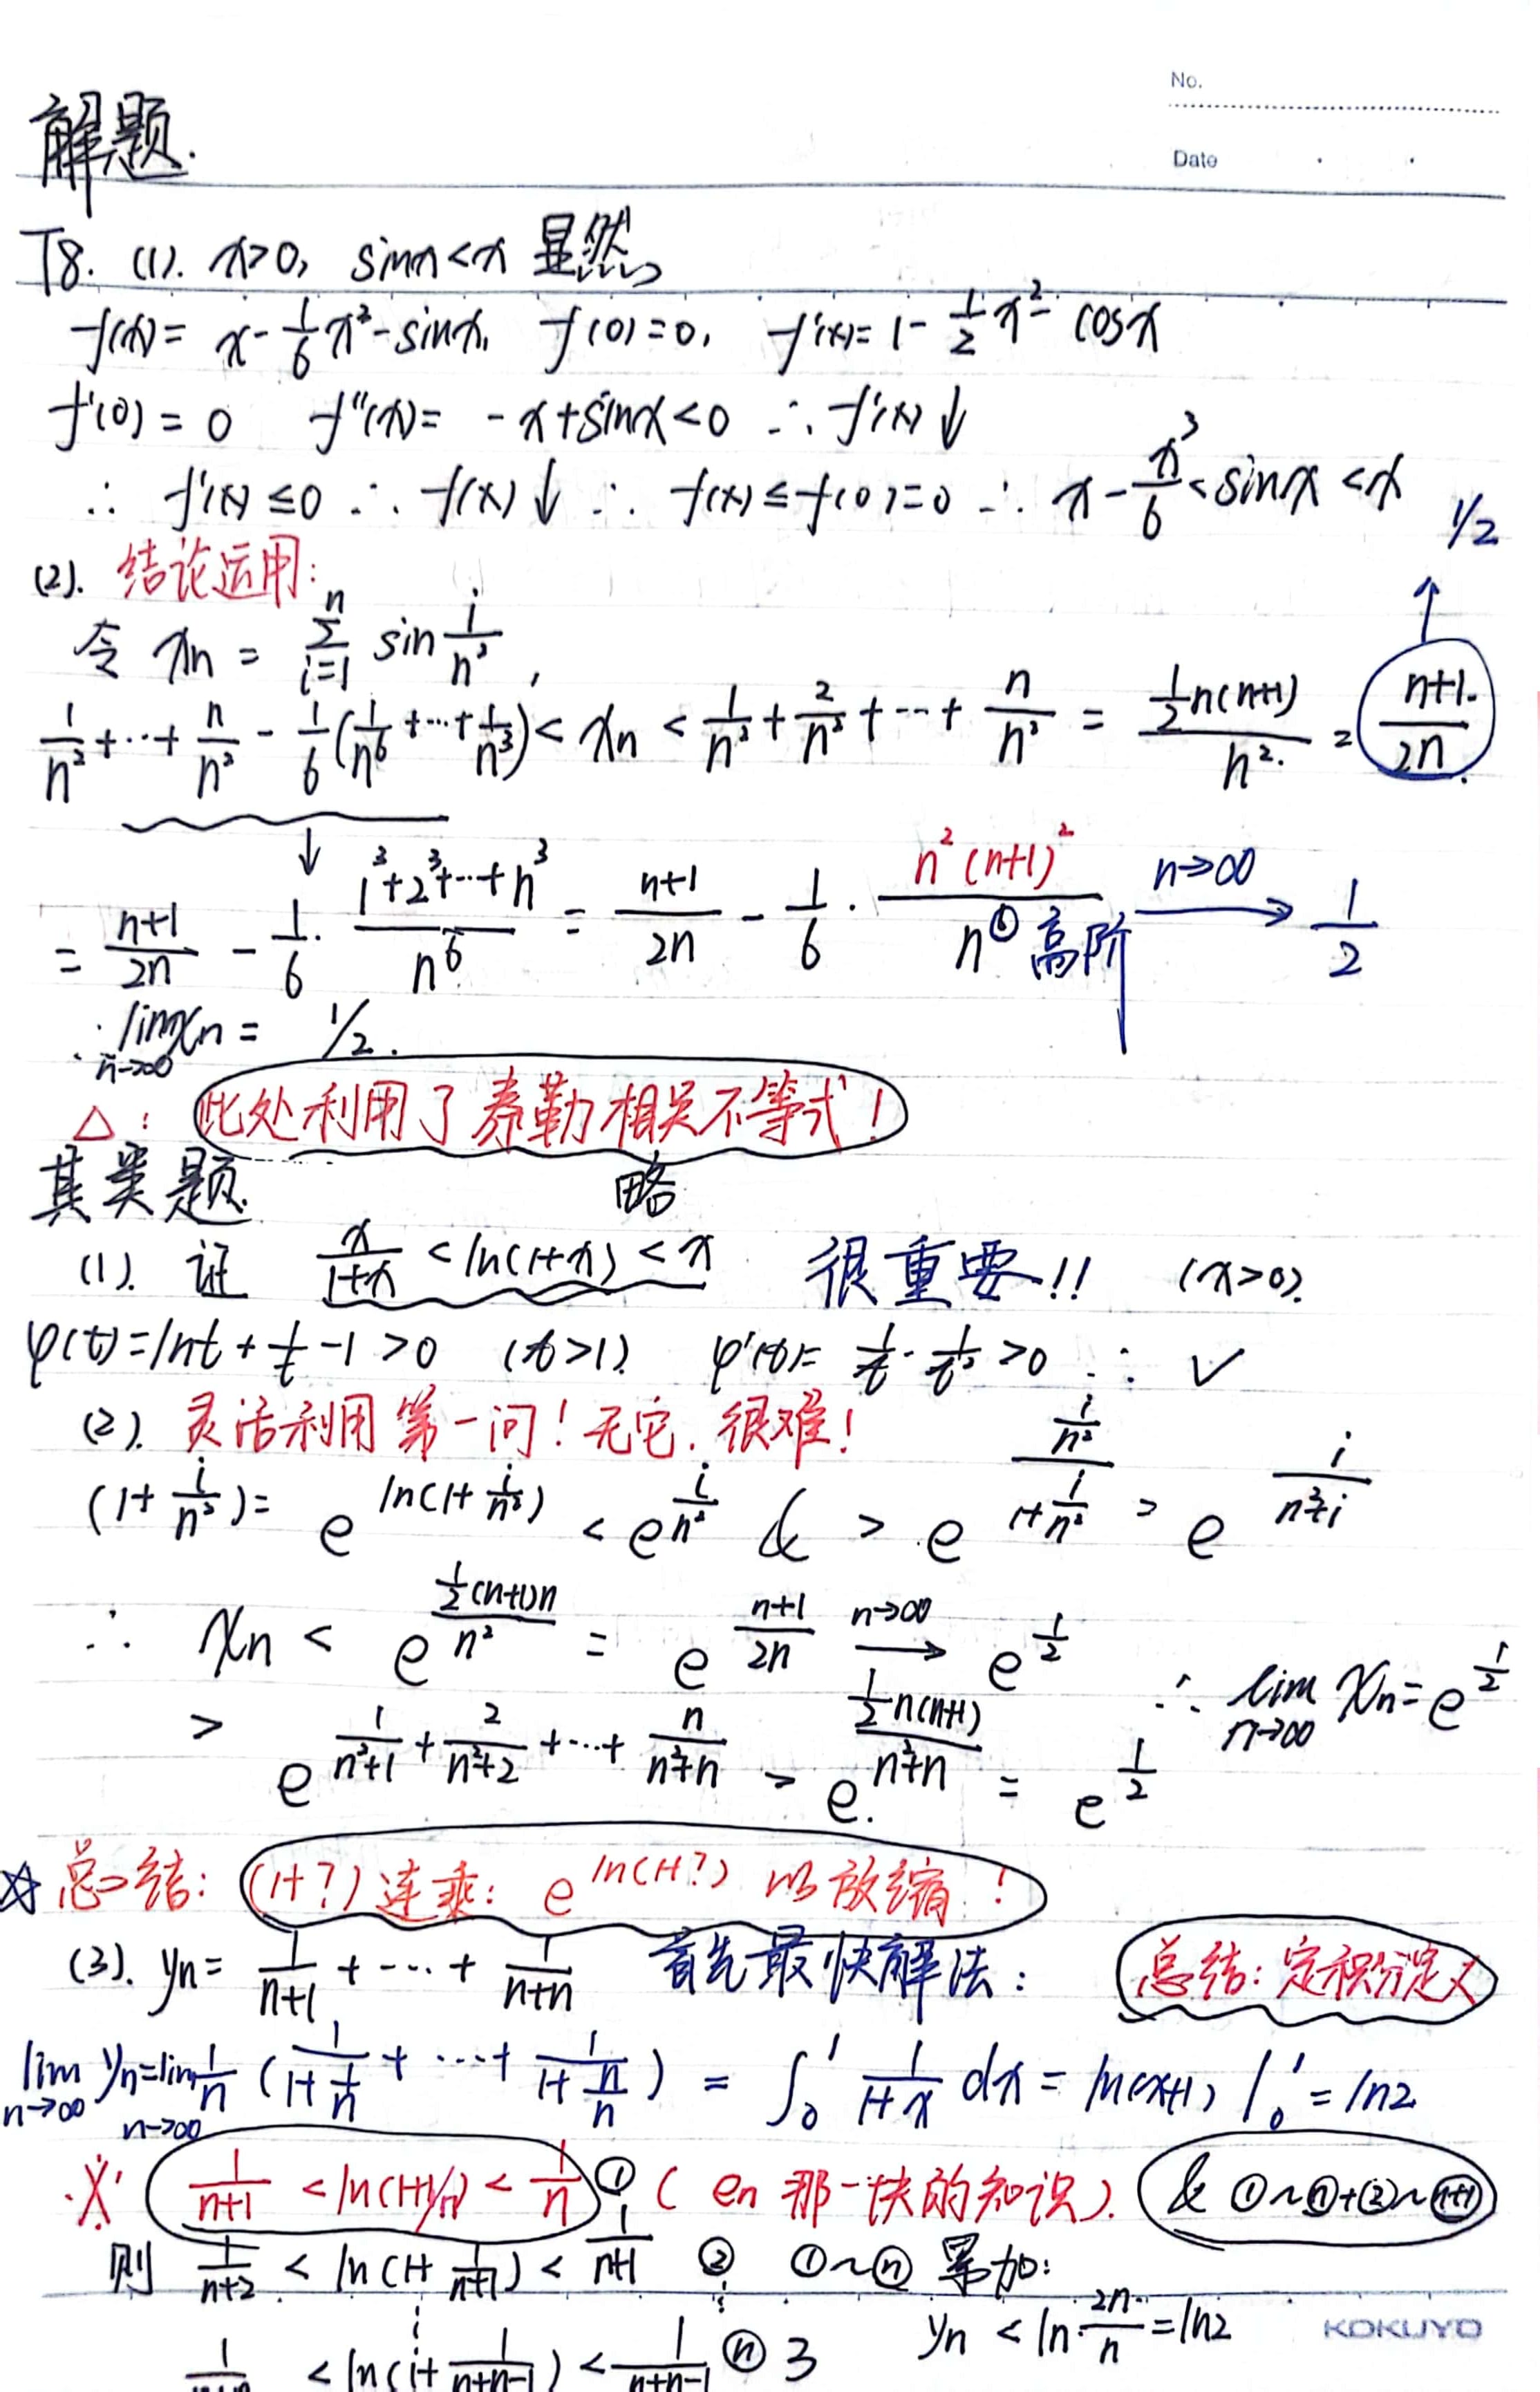 No.
Date
解题.
T8. (1). x>0, sinx<x 显然
f(x)= x-1/6 x³-sinx, f(0)=0, f'(x)=1-1/2 x²-cosx
f'(0)=0 f''(x)= -x+sinx<0 ∴f'(x)↓
∴ f'(x)≤0 ∴ f(x)↓ ∴ f(x)≤f(0)=0 ∴ x-x³/6<sinx<x
1/2
(2). 结论运用:
令 xn = Σ_{i=1}^{n} sin i/n²,
1/n²+…+n/n² - 1/6(1/n⁶+…+1/n³)< xn < 1/n²+2/n²+…+n/n² = (1/2 n(n+1))/n². = (n+1)/2n.
↓
= (n+1)/2n - 1/6·(1³+2³+…+n³)/n⁶ = (n+1)/2n - 1/6·(n²(n+1)²)/n⁶ 高阶 n→∞ → 1/2
∴ lim_{n→∞} xn = 1/2.
△: 此处利用了泰勒相关不等式!
其类题. 略
(1). 证 x/(1+x) <ln(1+x)<x 很重要!! (x>0).
φ(t)=lnt+1/t-1>0 (t>1). φ'(t)= 1/t-1/t²>0 ∴ ✓
(2). 灵活利用第一问! 无它.很难!
(1+i/n²)= e^{ln(1+i/n²)} < e^{i/n²} & > e^{(i/n²)/(1+i/n²)} = e^{i/(n²+i)}
∴ xn < e^{(1/2(n+1)n)/n²} = e^{(n+1)/2n} n→∞ → e^{1/2}
∴ lim_{n→∞} xn=e^{1/2}
> e^{1/(n²+1)+2/(n²+2)+…+n/(n²+n)} > e^{(1/2 n(n+1))/(n²+n)} = e^{1/2}
☆ 总结: (1+?)连乘: e^{ln(1+?)} 以放缩!
(3). yn= 1/(n+1)+…+1/(n+n) 首先最快解法: 总结: 定积分定义
lim_{n→∞} yn=lim_{n→∞} 1/n (1/(1+1/n)+…+1/(1+n/n)) = ∫₀¹ 1/(1+x) dx = ln(x+1)|₀¹ =ln2
※ 1/(n+1) <ln(1+1/n)<1/n ① (en 那一块的知识). & ①~ⓝ+②~(n+1)
则 1/(n+2) <ln(1+1/(n+1))<1/(n+1) ② ①~ⓝ 累加:
⋮ ⋮ yn <ln·2n/n=ln2
1/(n+n) <ln(1+1/(n+n-1))<1/(n+n-1) ⓝ 3
KOKUYO